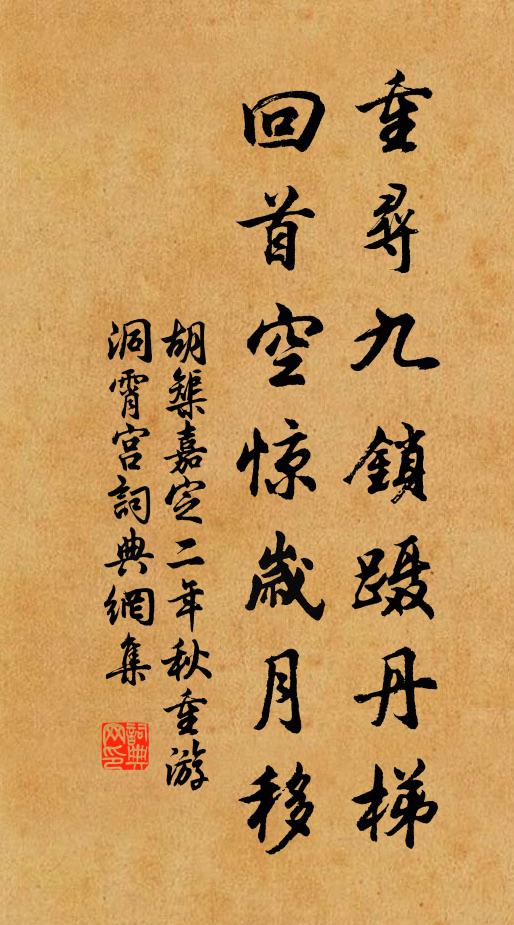 重尋九鎖躡丹梯
回首空惊歲月移
胡榘嘉定二年秋重游
洞霄宮詞典網集
詞典網印